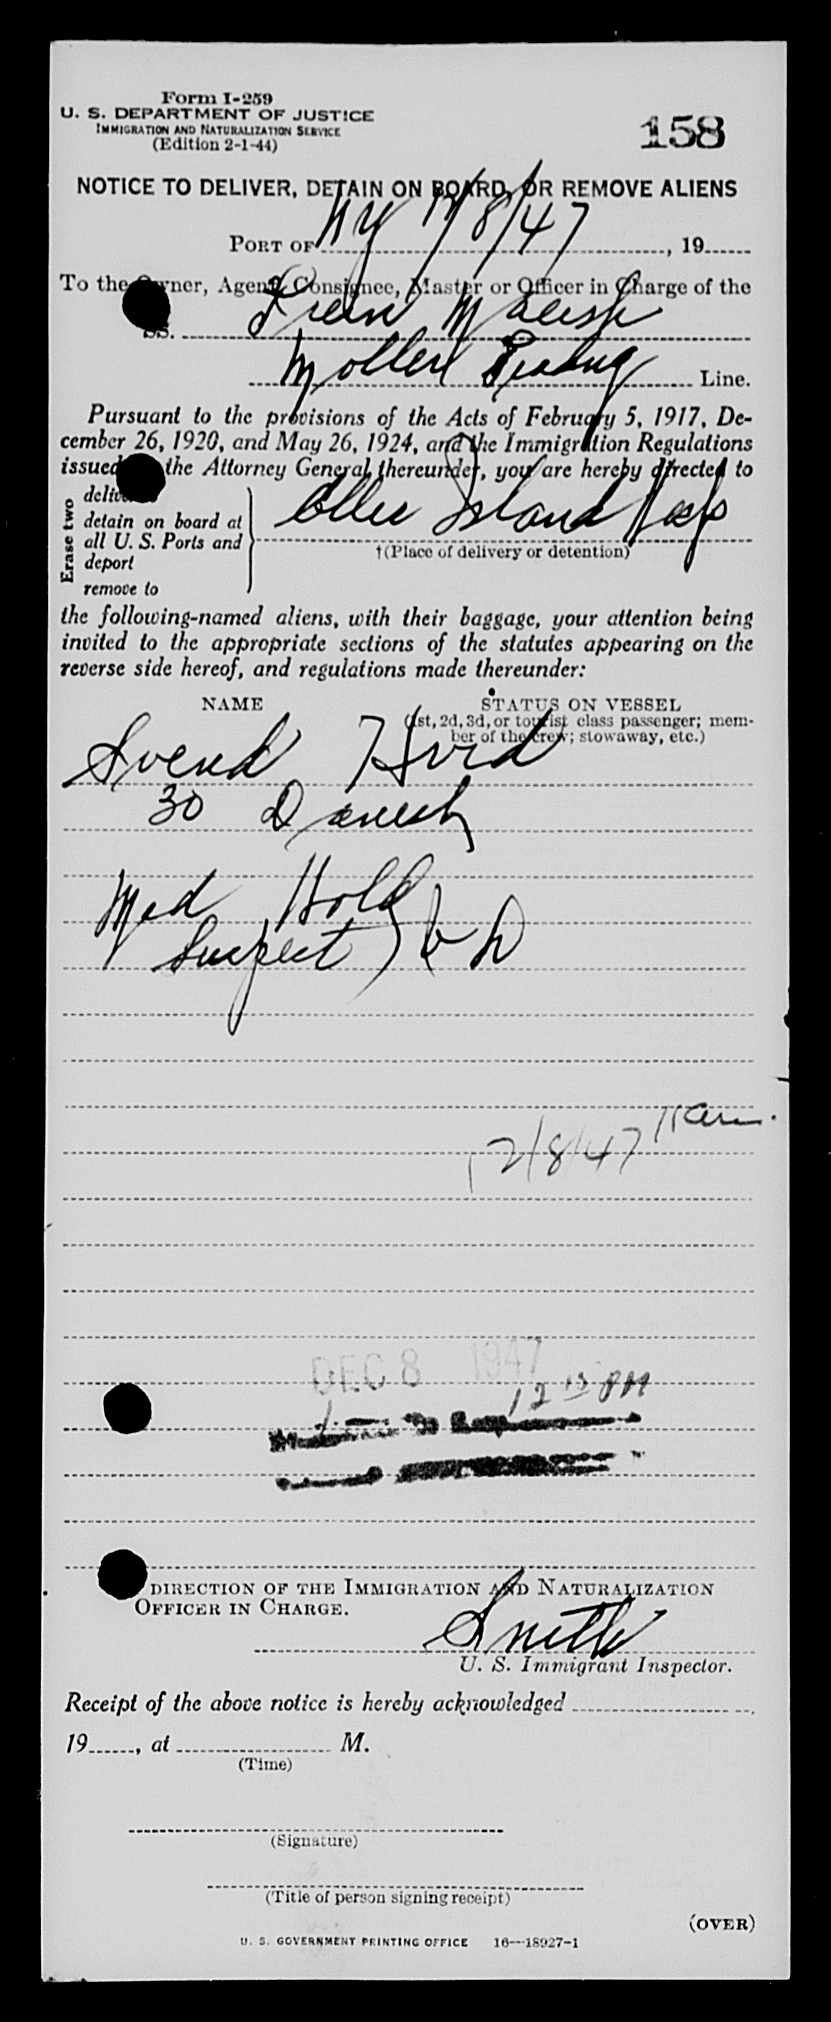 Form I-259
U. S. DEPARTMENT OF JUSTICE
IMMIGRATION AND NATURALIZATION SERVICE
(Edition 2-1-44)
158
NOTICE TO DELIVER, DETAIN ON BOARD, OR REMOVE ALIENS
PORT OF NY 12/8/47, 19
To the Owner, Agent, Consignee, Master or Officer in Charge of the
SS. Maersk
Moller Line.
Pursuant to the provisions of the Acts of February 5, 1917, De-
cember 26, 1920, and May 26, 1924, and the Immigration Regulations
issued the Attorney General thereunder, you are hereby directed to
Erase two
deliver
detain on board at
all U. S. Ports and
deport
remove to
Ellis Island Hosp
†(Place of delivery or detention)
the following-named aliens, with their baggage, your attention being
invited to the appropriate sections of the statutes appearing on the
reverse side hereof, and regulations made thereunder:
NAME STATUS ON VESSEL
(1st, 2d, 3d, or tourist class passenger; mem-
ber of the crew; stowaway, etc.)
Svend Hvid
30 Danish
Med Hold
Suspect V D
12/8/47
DEC 8 1947
12 15 PM
DIRECTION OF THE IMMIGRATION AND NATURALIZATION
OFFICER IN CHARGE.
Smith
U. S. Immigrant Inspector.
Receipt of the above notice is hereby acknowledged
19, at M.
(Time)
(Signature)
(Title of person signing receipt)
(OVER)
U. S. GOVERNMENT PRINTING OFFICE 16—18927-1